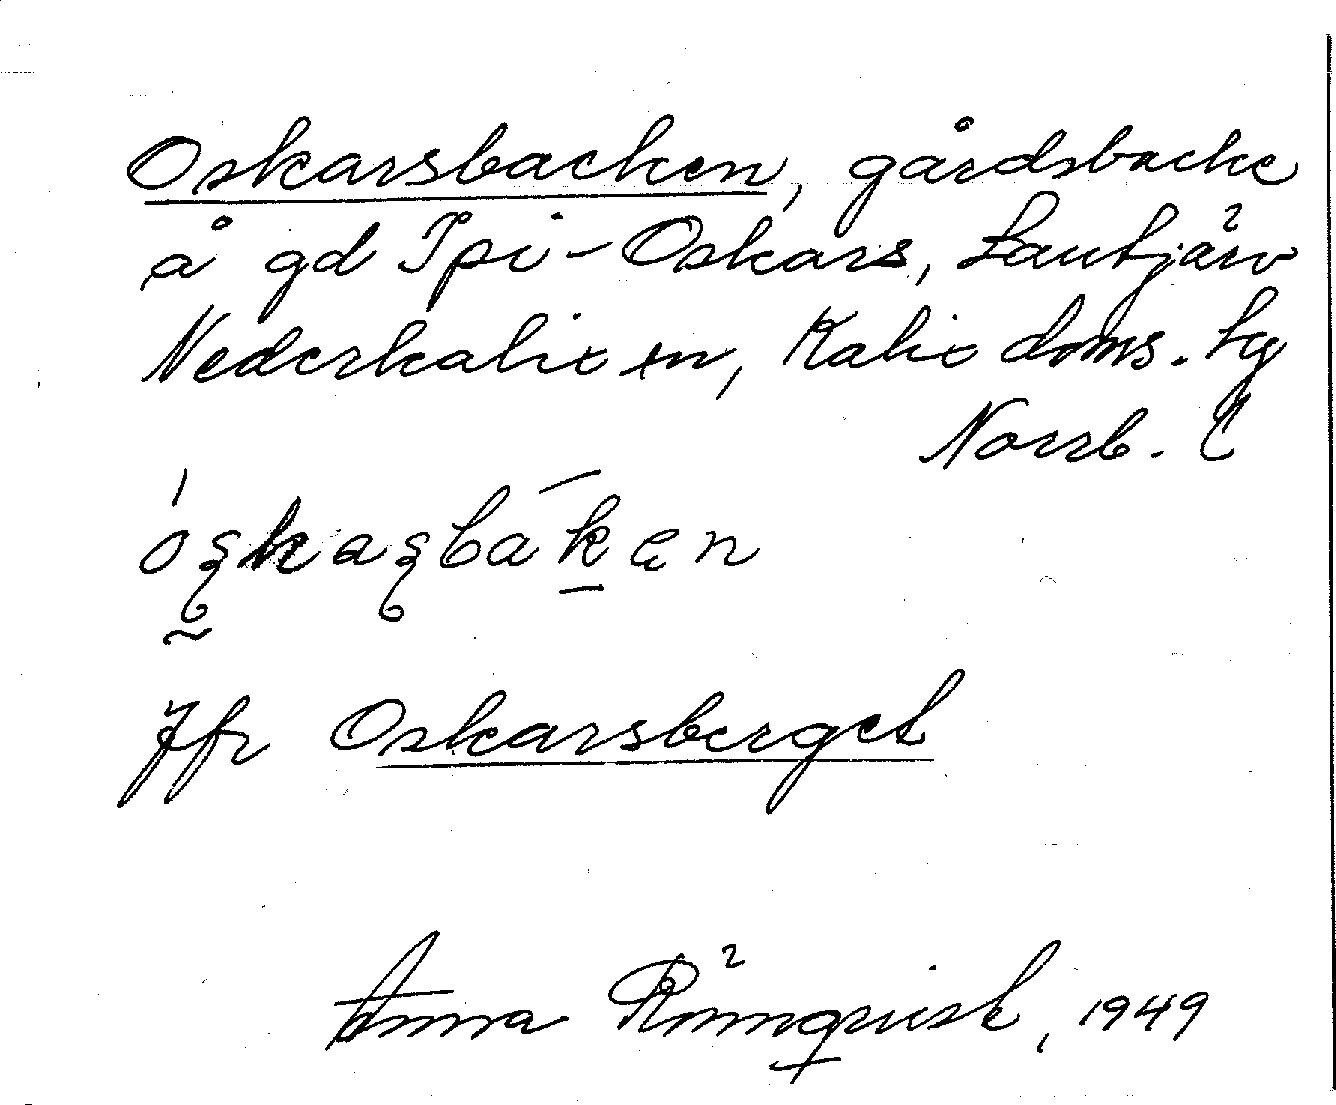 Oskarsbacken, gårdsbacke
å gd Ipi-Oskars, Lantjärv
Nederkalix sn, Kalix doms. lg
Norrb.
Jfr Oskarsberget
Anna Rönnqvist, 1949